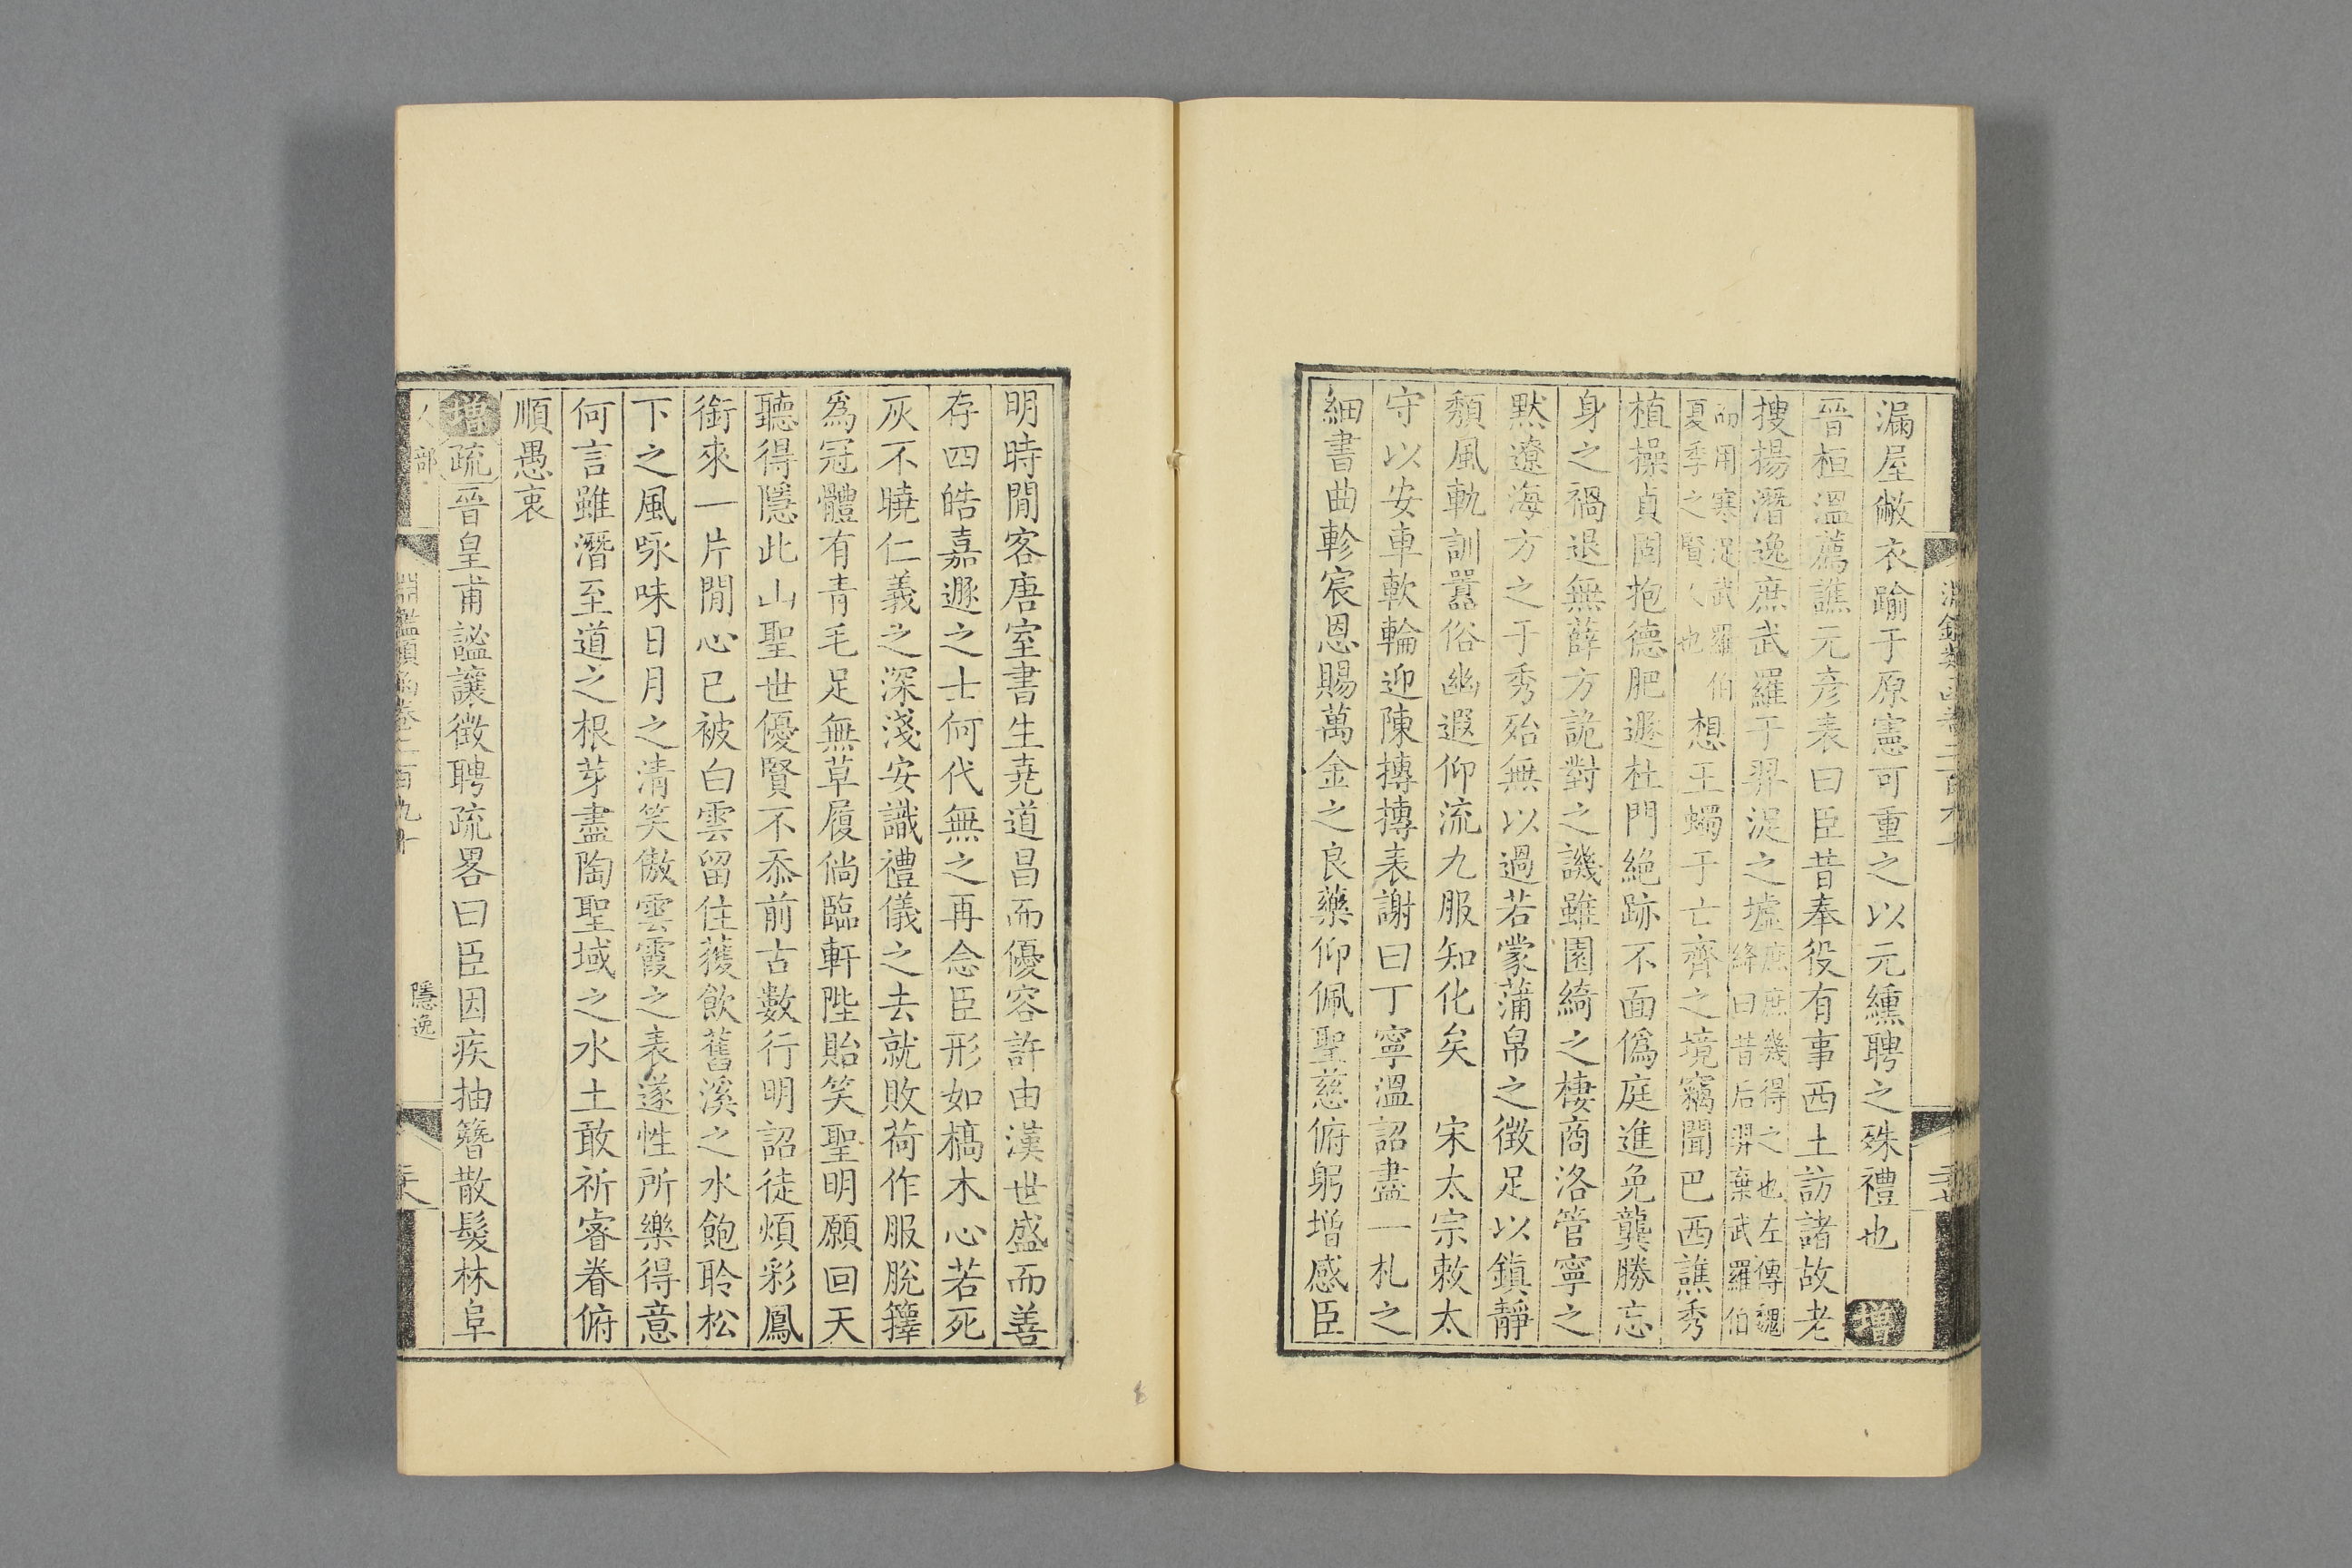 漏屋敝衣踰于原憲可重之以元纁聘之殊禮也 增
晉桓溫薦譙元彥表曰臣昔奉役有事西土訪諸故老
搜揚潛逸庶武羅于羿浞之墟庶庶幾得之也左傳魏
絳曰昔后羿棄武羅伯
而用寒浞武羅伯
夏季之賢人也想王蠋于亡齊之境竊聞巴西譙秀
植操貞固抱德肥遯杜門絶跡不面僞庭進免龔勝忘
身之禍退無薛方詭對之譏雖園綺之棲商洛管寧之
默遼海方之于秀殆無以過若蒙蒲帛之徵足以鎮靜
頽風軌訓嚚俗幽遐仰流九服知化矣 宋太宗敕太
守以安車軟輪迎陳摶摶表謝曰丁寧溫詔盡一札之
細書曲軫宸恩賜萬金之良藥仰佩聖慈俯躬増感臣
明時閒客唐室書生堯道昌而優容許由漢世盛而善
存四皓嘉遯之士何代無之再念臣形如槁木心若死
灰不曉仁義之深淺安識禮儀之去就敗荷作服脫籜
爲冠體有青毛足無草履倘臨軒陛貽笑聖明願回天
聽得隱此山聖世優賢不忝前古數行明詔徒煩彩鳳
銜來一片閒心已被白雲留住獲飮舊溪之水飽聆松
下之風咏味日月之清笑傲雲霞之表遂性所樂得意
何言雖潛至道之根芽盡陶聖域之水土敢祈睿眷俯
順愚衷
增 疏 晉皇甫謐讓徵聘疏畧曰臣因疾抽簪散髮林阜
人部
淵鑑類函卷二百九十
隱逸